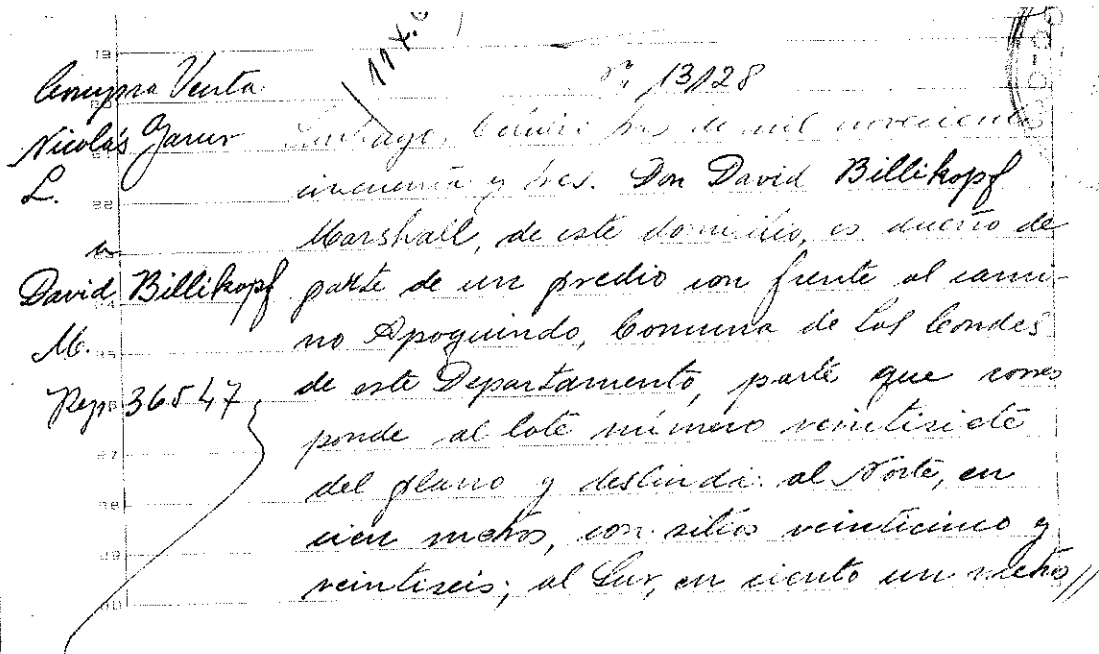 Compra Venta
Nicolás Yarur
L.
a
David Billikopf
M.
Rep 36547
Nº 13128
Santiago, de mil novecientos
cincuenta y tres. Don David Billikopf
Marshall, de este domicilio, es dueño de
parte de un predio con frente al cami-
no Apoquindo, Comuna de Las Condes
de este Departamento, parte que corres
ponde al lote número veintisiete
del plano y deslinda: al Norte, en
cien metros, con sitios veinticinco y
veintiseis; al Sur, en ciento un metro//